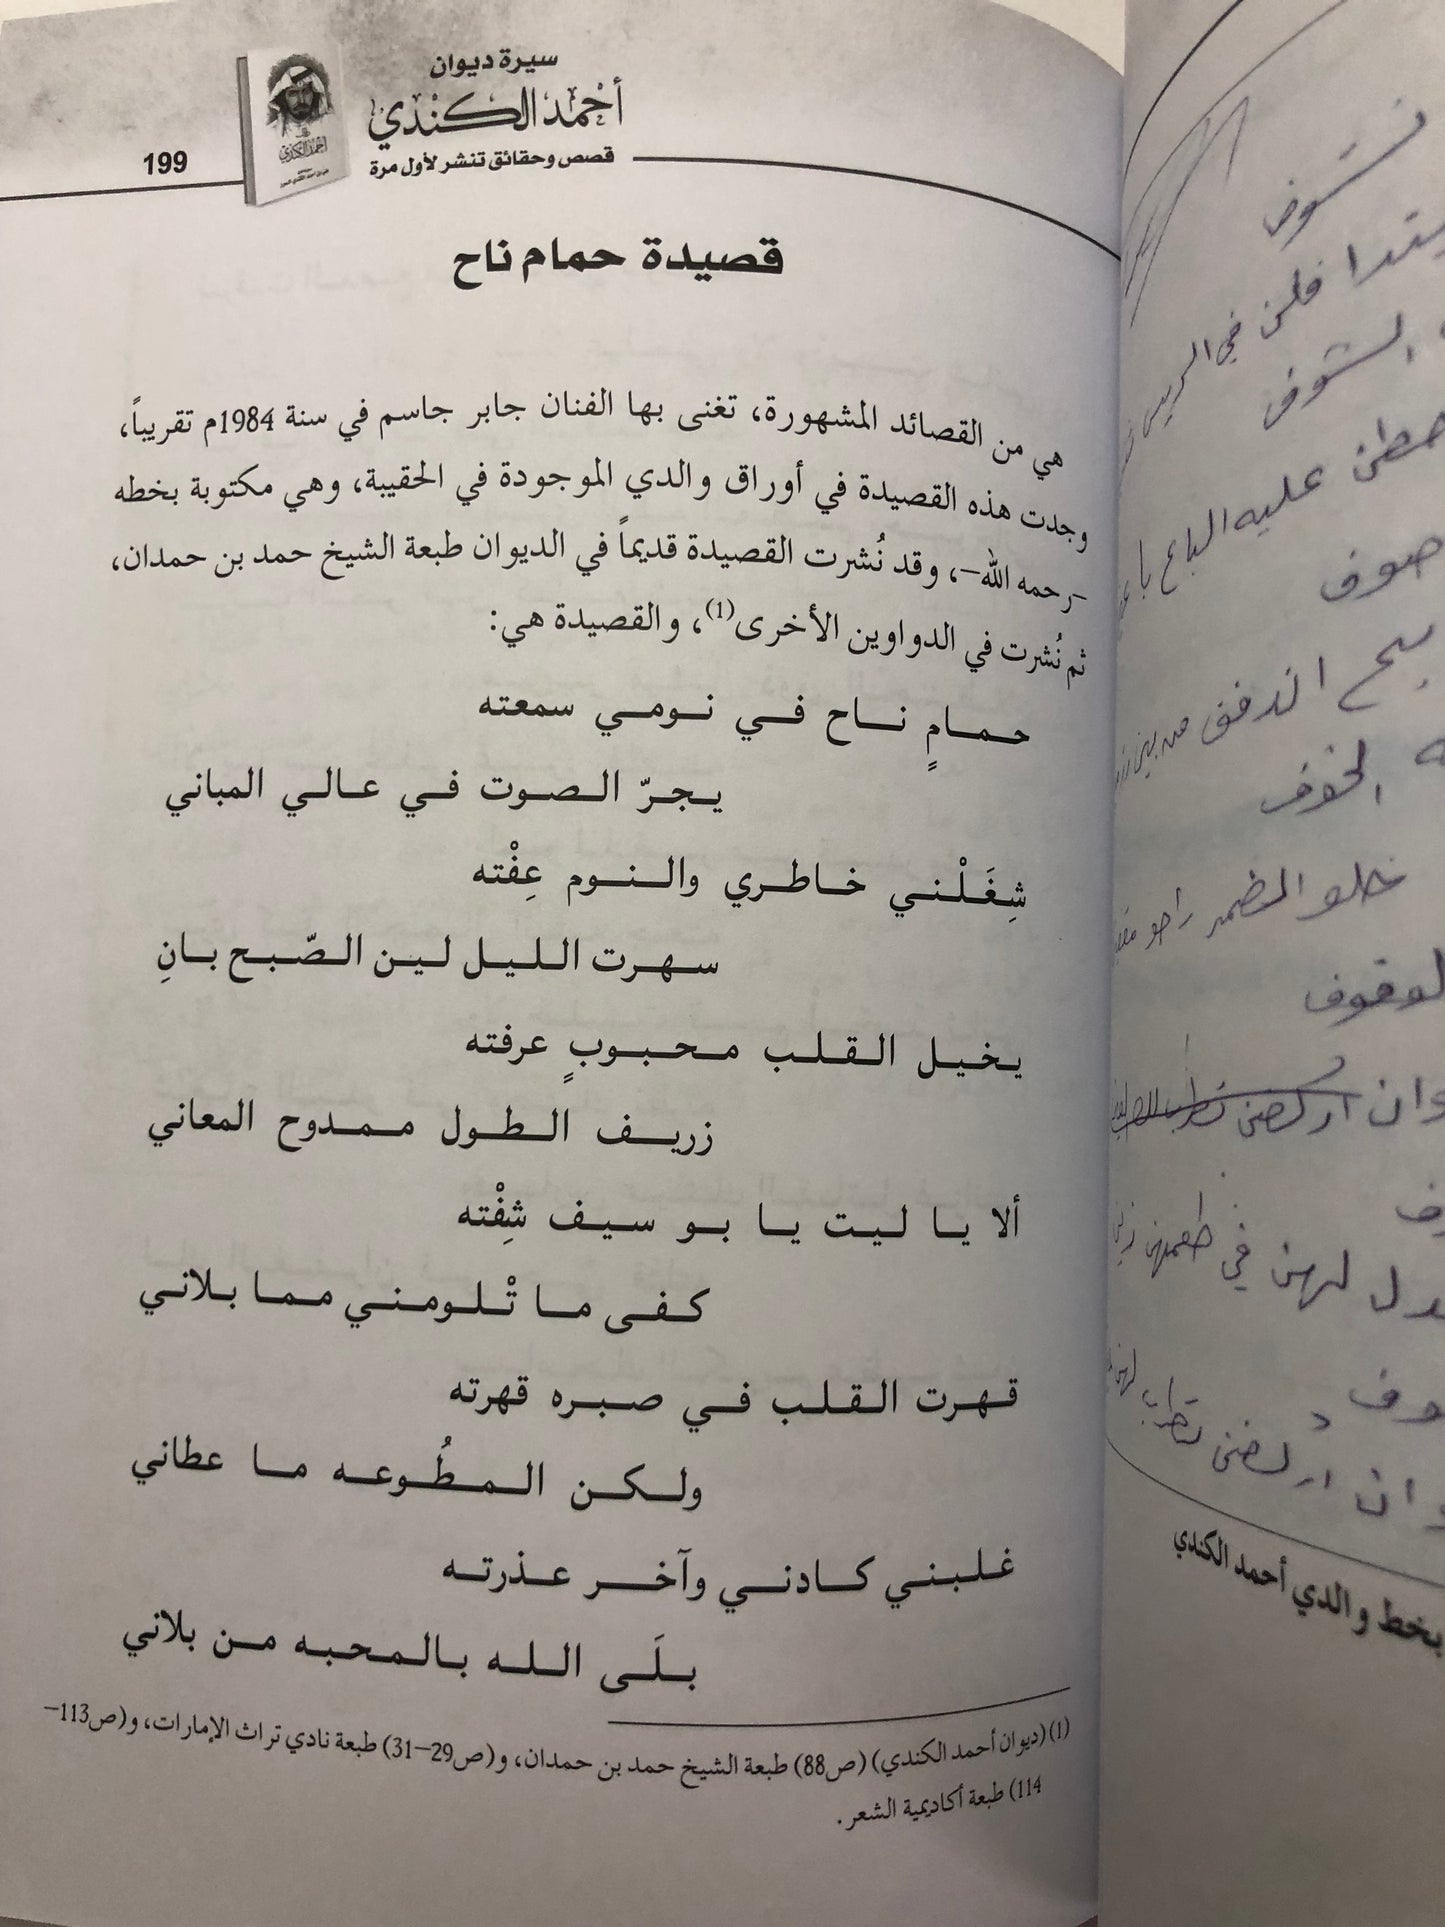 سيرة ديوان
أحمد الكندي
قصص وحقائق تنشر لأول مرة
199
قصيدة حمام ناح
هي من القصائد المشهورة، تغنى بها الفنان جابر جاسم في سنة 1984م تقريباً،
وجدت هذه القصيدة في أوراق والدي الموجودة في الحقيبة، وهي مكتوبة بخطه
-رحمه الله-، وقد نُشرت القصيدة قديماً في الديوان طبعة الشيخ حمد بن حمدان،
ثم نُشرت في الدواوين الأخرى(1)، والقصيدة هي:
حمامٍ ناح في نومي سمعته
يجرّ الصوت في عالي المباني
شِغَلْني خاطري والنوم عِفْته
سهرت الليل لين الصّبح بانِ
يخيل القلب محبوبٍ عرفته
زريف الطول ممدوح المعاني
ألا يا ليت يا بو سيف شِفْته
كفى ما تْلومني مما بلاني
قهرت القلب في صبره قهرته
ولكن المطُوعه ما عطاني
غلبني كادني وآخر عذرته
بلَى الله بالمحبه من بلاني
(1) (ديوان أحمد الكندي) (ص88) طبعة الشيخ حمد بن حمدان، و(ص29-31) طبعة نادي تراث الإمارات، و(ص113-
114) طبعة أكاديمية الشعر.
الشوف
عليه الباع
صوف
الدفق من بين
الخوف
خلو المضمر راحو
لوقوف
لهن في طعمهن
بخط والدي أحمد الكندي